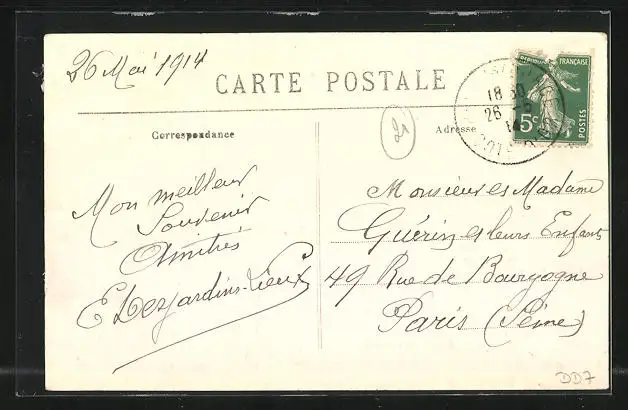 26 Mai 1914
CARTE POSTALE
Correspondance
Adresse
21
REPUBLIQUE FRANÇAISE
5c
POSTES
18 30
26 -5
14
COTE D'OR
Mon meilleur
Souvenir
Amitiés
E Desjardins-Lieux
Monsieur et Madame
Guérin et leurs Enfants
49 Rue de Bourgogne
Paris (Seine)
DD7